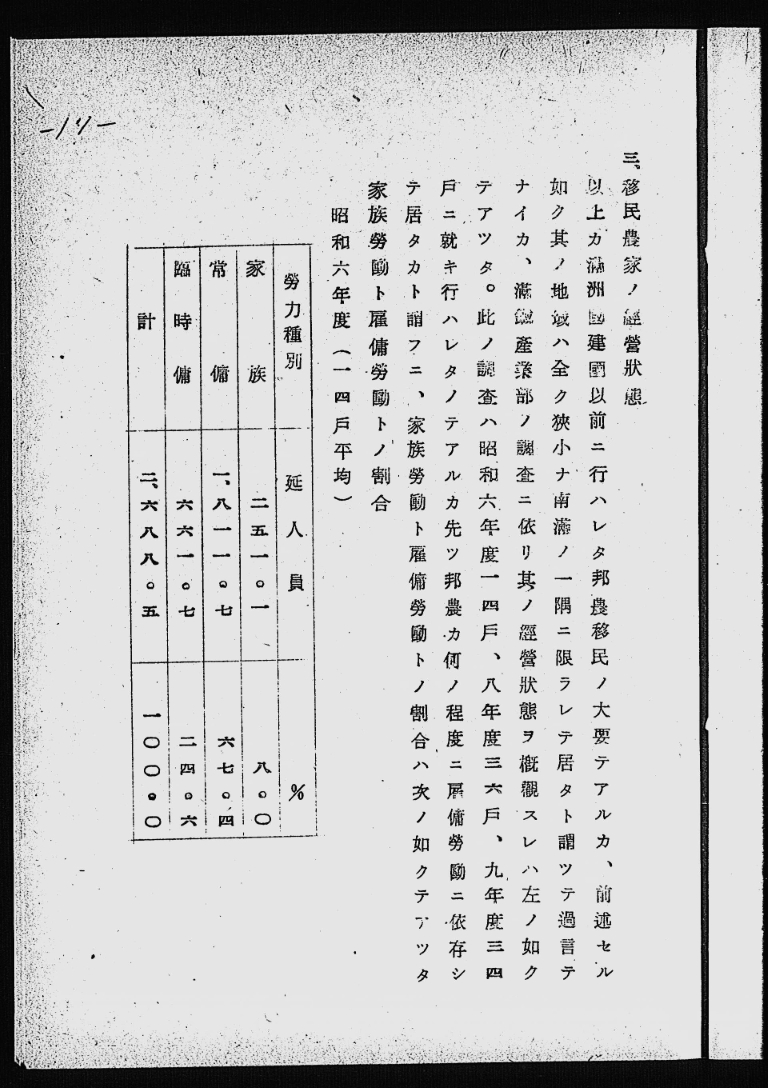 -17-
三、移民農家ノ經營狀態
以上カ滿洲國建國以前ニ行ハレタ邦農移民ノ大要テアルカ、前述セル
如ク其ノ地域ハ全ク狹小ナ南滿ノ一隅ニ限ラレテ居タト謂ツテ過言テ
ナイカ、滿鐵產業部ノ調查ニ依リ其ノ經營狀態ヲ槪觀スレハ左ノ如ク
テアツタ。此ノ調查ハ昭和六年度一四戶、八年度三六戶、九年度三四
戶ニ就キ行ハレタノテアルカ先ツ邦農カ何ノ程度ニ雇傭勞働ニ依存シ
テ居タカト謂フニ、家族勞働ト雇傭勞働トノ割合ハ次ノ如クテアツタ
家族勞働ト雇傭勞働トノ割合
昭和六年度（一四戶平均）
勞力種別 延人員 %
家族 二五一。一 八。〇
常傭 一、八一一。七 六七。四
臨時傭 六六一。七 二四。六
計 二、六八八。五 一〇〇。〇